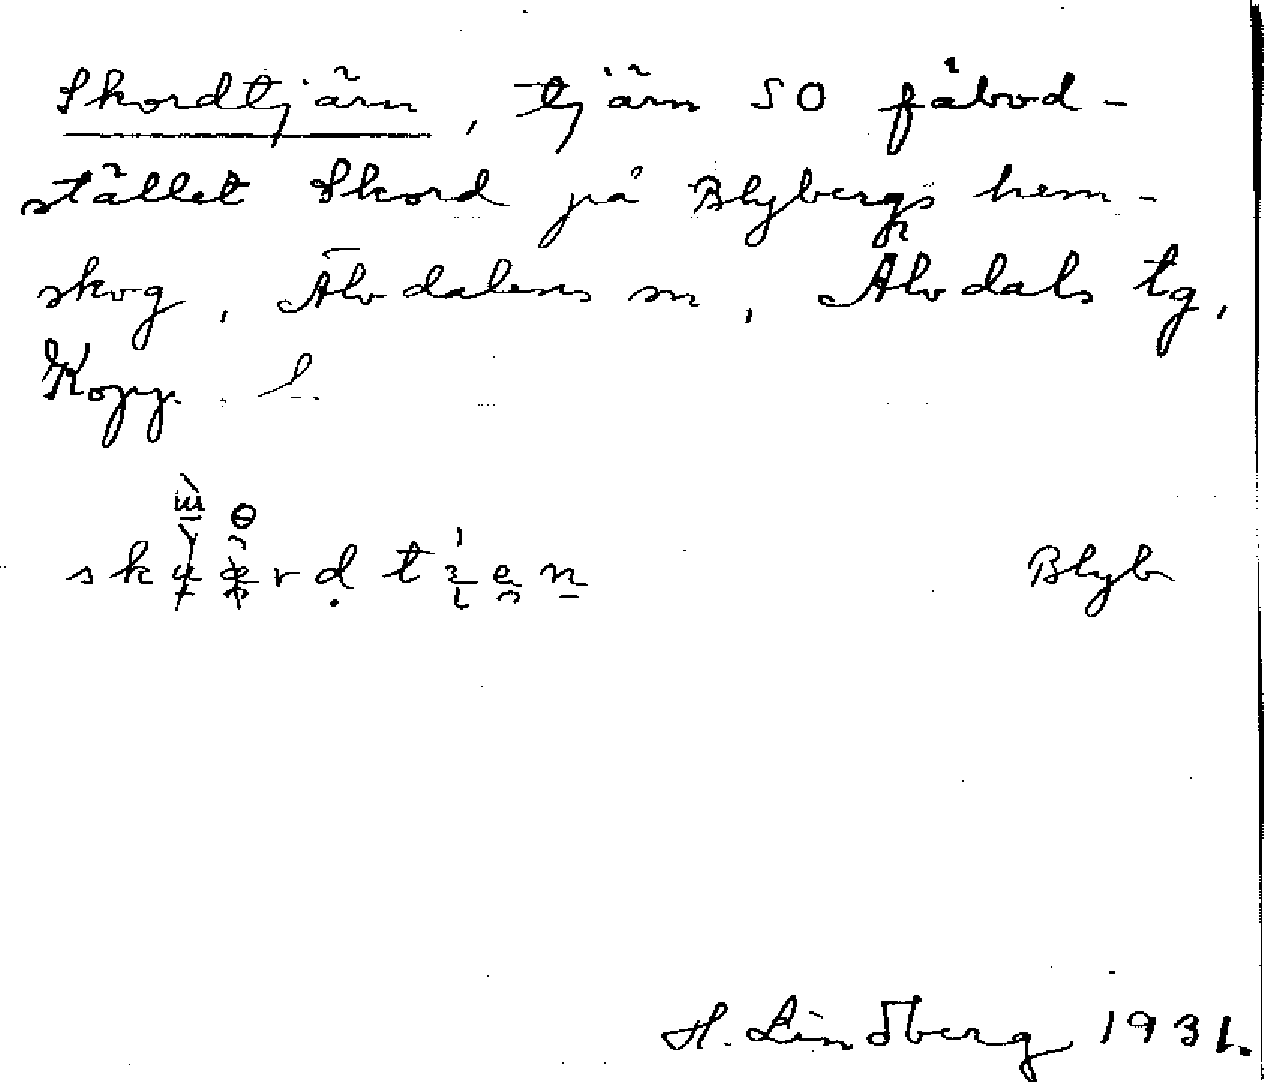 Skordtjärn, tjärn SO fäbod-
stället Skord på Blybergs hem-
skog, Älvdalens sn, Älvdals tg,
Kopp. l.
Blyb
H. Lindberg 1931.